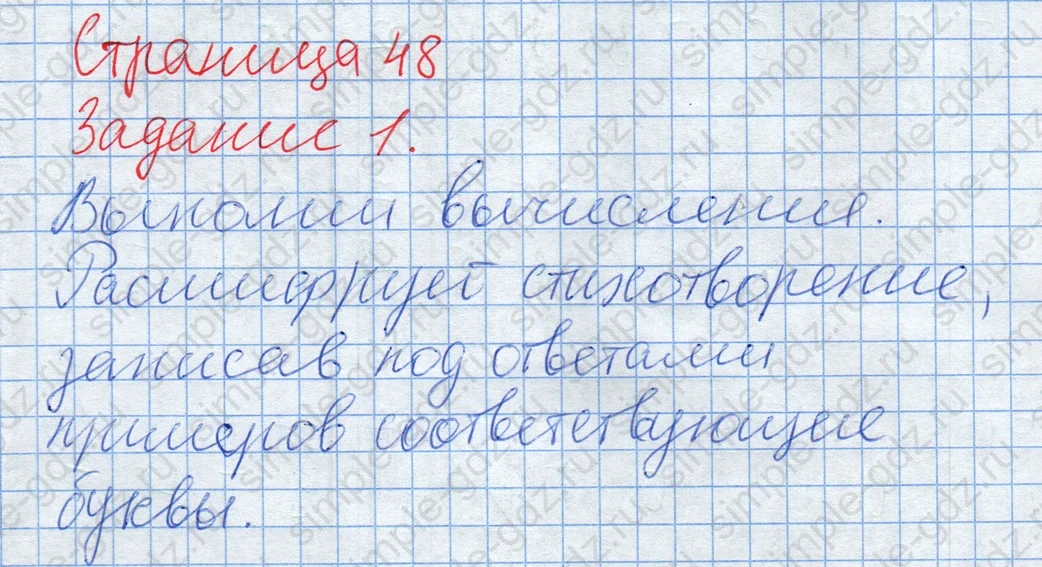 Страница 48
Задание 1.
Выполни вычисления.
Расшифруй стихотворение,
записав под ответами
примеров соответствующие
буквы.